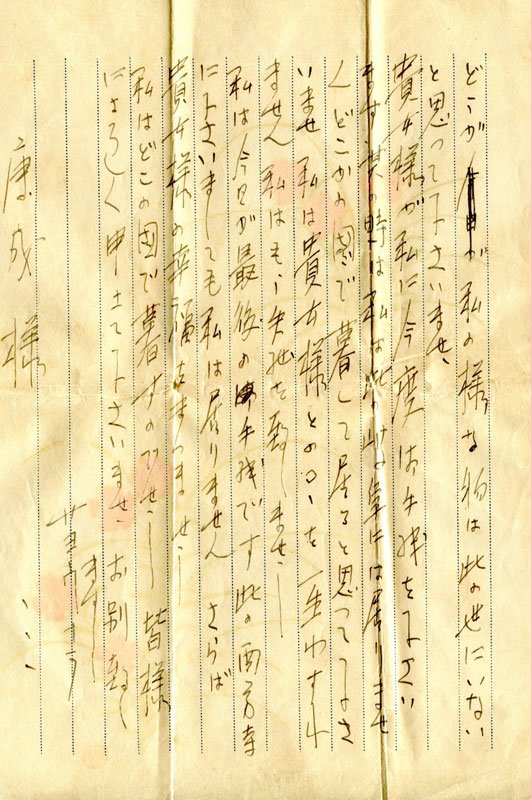 どこかで私の様な物は此の世にいない
と思って下さいませ、
貴女様が私に今度は手紙を下さい
ます其の時は私は此の岐阜には居りませ
んどこかの国で暮して居ると思って下さ
いませ 私は貴女様との○○を一生わすれ
ません 私はもう手紙を
私は今日が最後の御手紙です此の西方寺
に下さいましても私は居りません さらば
貴女様の幸福を
私はどこの国で暮すのでせう 皆様
によろしく申上て下さいませ、お別れ致し
ます
康成様